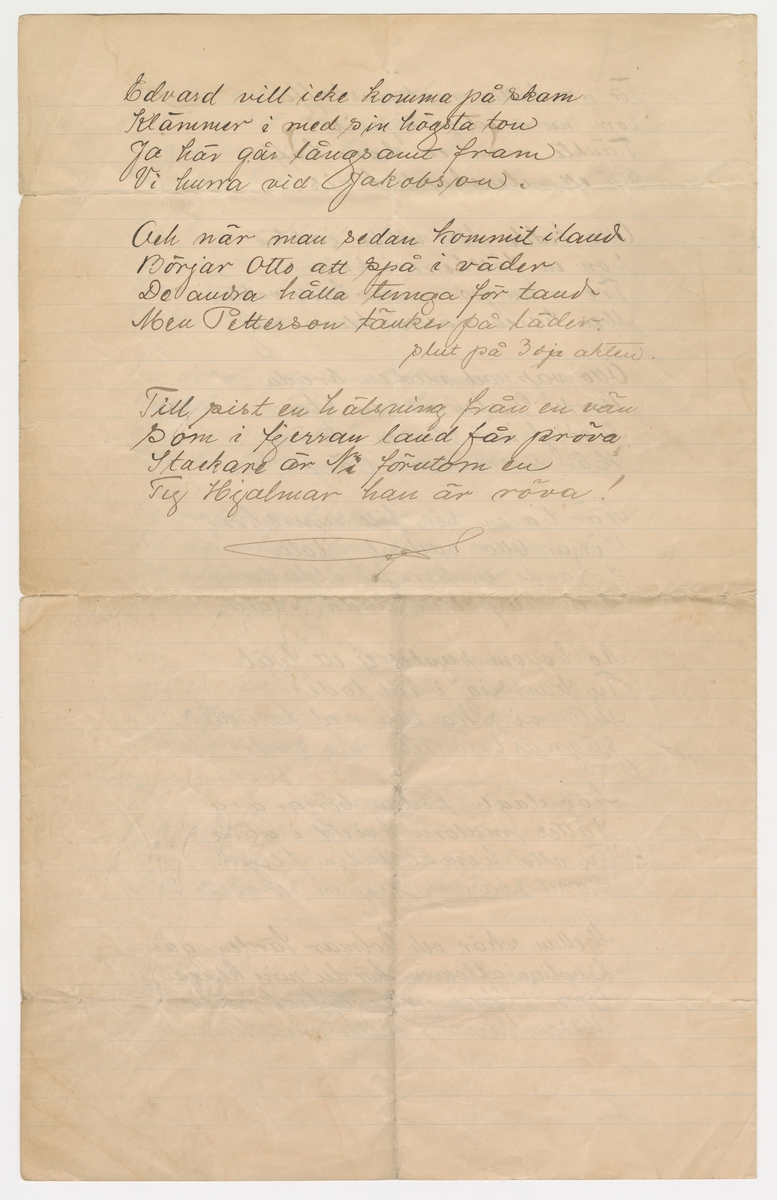 Edvard vill icke komma på skam
Klämmer i med sin högsta ton
Ja här går långsamt fram
Vi hurra vid Jakobson.
Och när man sedan kommit i land
Börjar Otto att spå i väder
De andra hålla tunga för tand
Men Petterson tänker på läder.
slut på 3dje akten.
Till sist en hälsning från en vän
Som i fjerran land får pröva
Stackare är Ni förutom en
Ty Hjalmar han är röva!